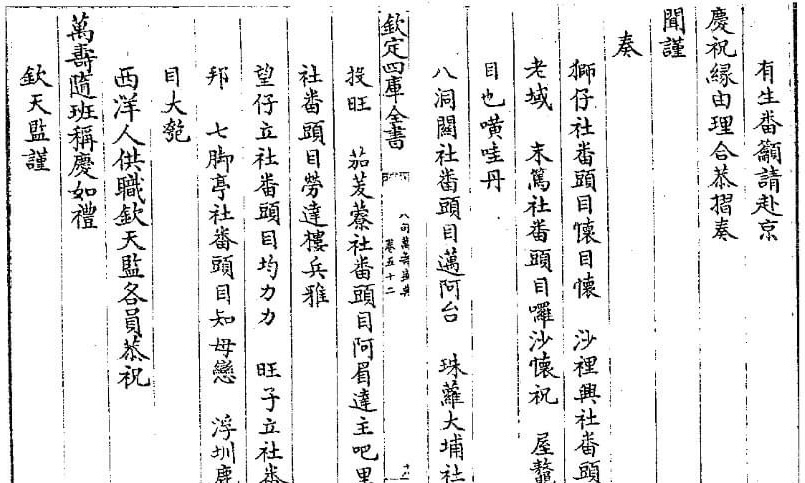 有生番籲請赴京
慶祝縁由理合恭摺奏
聞謹
奏
獅仔社畨頭目懷目懷　沙裡興社畨頭
老域　末篤社畨頭目囉沙懷祝　屋鼇
目也璜哇丹
八洞關社畨頭目邁阿台　珠蘿大埔社
欽定四庫全書
八旬萬壽盛典
卷五十二
投旺　茄茇藔社畨頭目阿眉達主吧里
社畨頭目勞達樓兵雅
望仔立社畨頭目均力力　旺子立社畨
邦　七脚亭社畨頭目知母戀　浮圳鹿
目大虌
西洋人供職欽天監各員恭祝
萬壽隨班稱慶如禮
欽天監謹